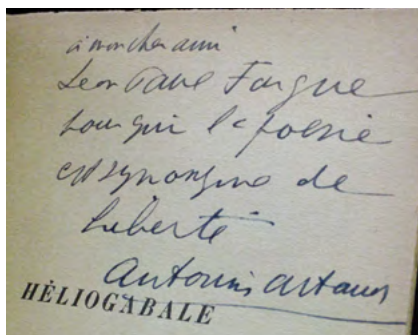 à mon cher ami
Leon Paul Fargue
pour qui la poesie
est synonyme de
liberté
Antonin Artaud
HÉLIOGABALE